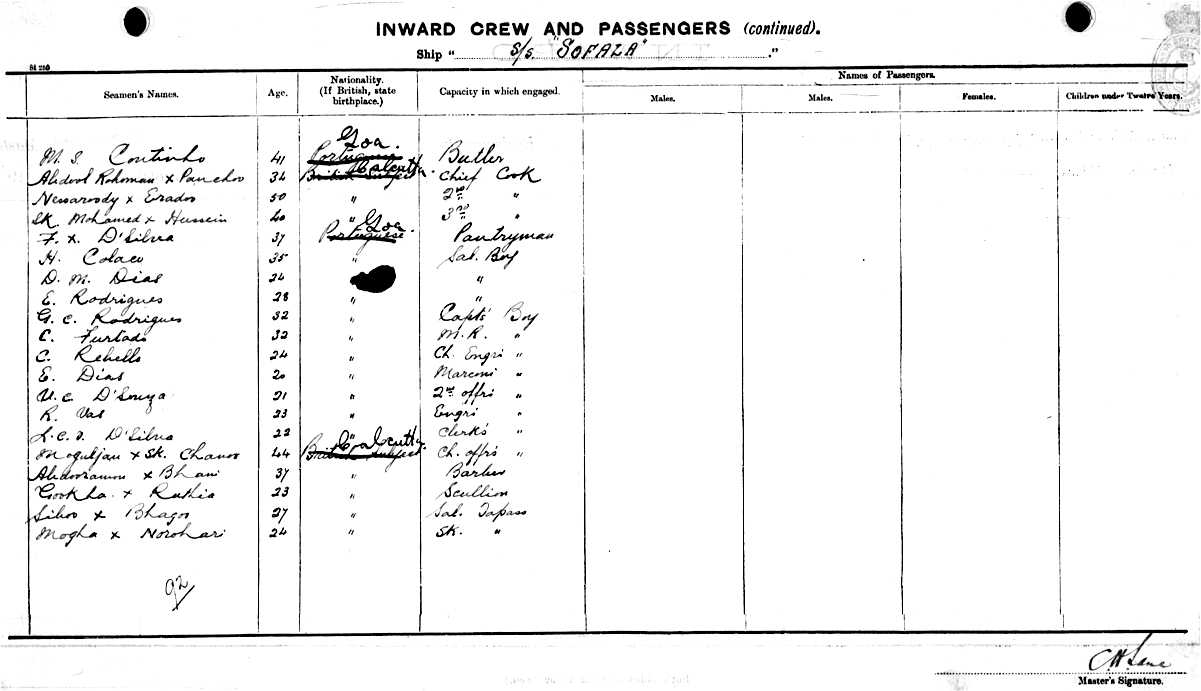 INWARD CREW AND PASSENGERS (continued).
Ship " S/S. "SOFALA" "
Seamen's Names. Age. Nationality. (If British, state birthplace.) Capacity in which engaged. Names of Passengers.
Males. Males. Females. Children under Twelve Years.
Goa.
M. S. Coutinho 41 Portuguese Butler
Calcutta.
Abdool Rohoman x Panchoo 34 British Subject Chief Cook
Nessaroody x Erados 50 " 2nd "
SK. Mohamed x Hussein 40 " 3rd "
Goa.
F. X. D'Silva 37 Portuguese Pantryman
H. Colaco 35 " Sal. Boy
D. M. Dias 24 "
E. Rodrigues 28 " "
G. C. Rodrigues 32 " Capt's Boy
C. Furtado 32 " M.R. "
C. Rebello 24 " Ch. Engrs "
E. Dias 20 " Marconi "
U. C. D'Souza 21 " 2nd offrs "
R. Vas 23 " Engrs "
D'Silva 22 " Clerk's "
Calcutta.
Moguljan x SK. Chanoo 44 British Subject Ch. offrs "
x Bhani 37 " Barber
Gookha x Ruthia 23 " Scullion
Siboo x Bhagoo 27 " Sal. Topass
Mogha x Norohari 24 " SK. "
92
C H Lane
Master's Signature.